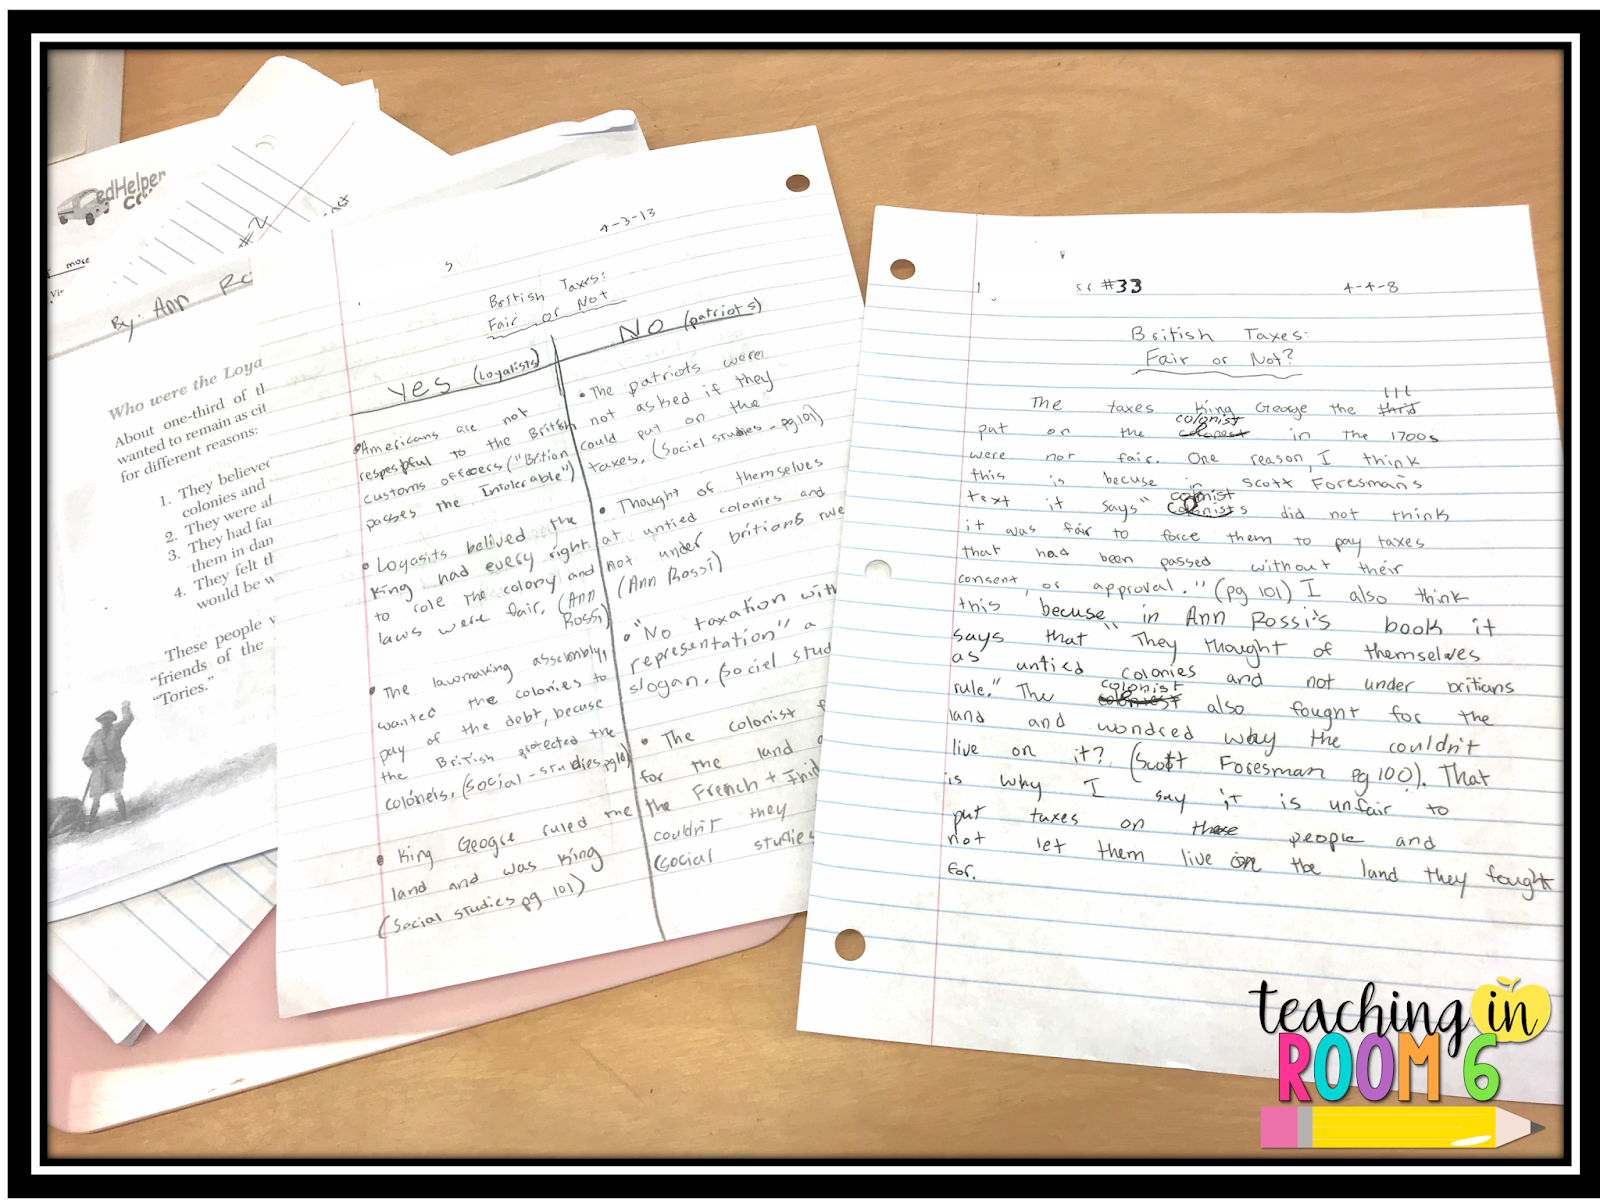 edHelper
more
#2
By: Ann
Who were the Loya
About one-third of th
wanted to remain as cit
for different reasons:
1. They believed
colonies and
2. They were af
3. They had far
them in dan
4. They felt th
would be w
These people w
"friends of the
"Tories."
4-3-13
British Taxes:
Fair or Not
Yes (Loyalists)
Americans are not
respespful to the British
customs officers ("Brition
passes the Intolerable")
Loyasits belived the
King had every right
to role the colony and
laws were fair. (Ann
Rossi)
The lawmaking assembly,
wanted the colonies to
pay of the debt, becuse
the British protected the
colóneis. (social-studies pg101)
King Geogre ruled the
land and was king
(Social studies pg 101)
NO (patriots)
The patriots were
not asked if they
could put on the
taxes. (Social studies - pg101)
Thought of themselves
at untied colonies and
not under britians rule
(Ann Rossi)
"No taxation with
representation" a
slogan. (social stud
The colonist f
for the land
the French + Inid
couldn't they
(social studies
#33
4-4-8
British Taxes:
Fair or Not?
The taxes King George the thrid III
put on the colonest colonist in the 1700s
were not fair. One reason, I think
this is becuse in Scott Foresman's
text it says "colonists colonist did not think
it was fair to force them to pay taxes
that had been passed without their
consent, or approval." (pg 101) I also think
this becuse in Ann Rossi's book it
says that "They thought of themselves
as untied colonies and not under britians
rule." The colonist also fought for the
land and wondred why the couldn't
live on it? (Scott Foresman pg 100). That
is why I say it is unfair to
put taxes on these people and
not let them live on the land they fought
for.
teaching in
ROOM 6